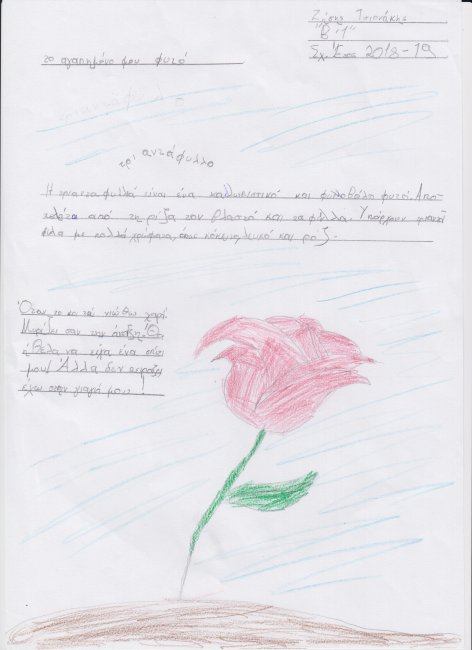 Ζήσης
"Β'1"
Σχ. Έτος 2018-19
το αγαπημένο μου φυτό
τρι αντάφυλλο
Η τριανταφυλλιά είναι ένα καλλωπιστικό και φυλλοβόλο φυτό. Απο-
τελείται από τη ρίζα τον βλαστό και τα φύλλα. Υπάρχουν
με πολλά χρώματα, όπως κόκκινο, λευκό και ροζ.
Όταν το κοιτάω νιώθω χαρά
Μυρίζει σαν την άνοιξη! Θα
ήθελα να είχα ένα σπίτι
μου! Αλλά δεν πειράζει
έχω στην γιαγιά μου!